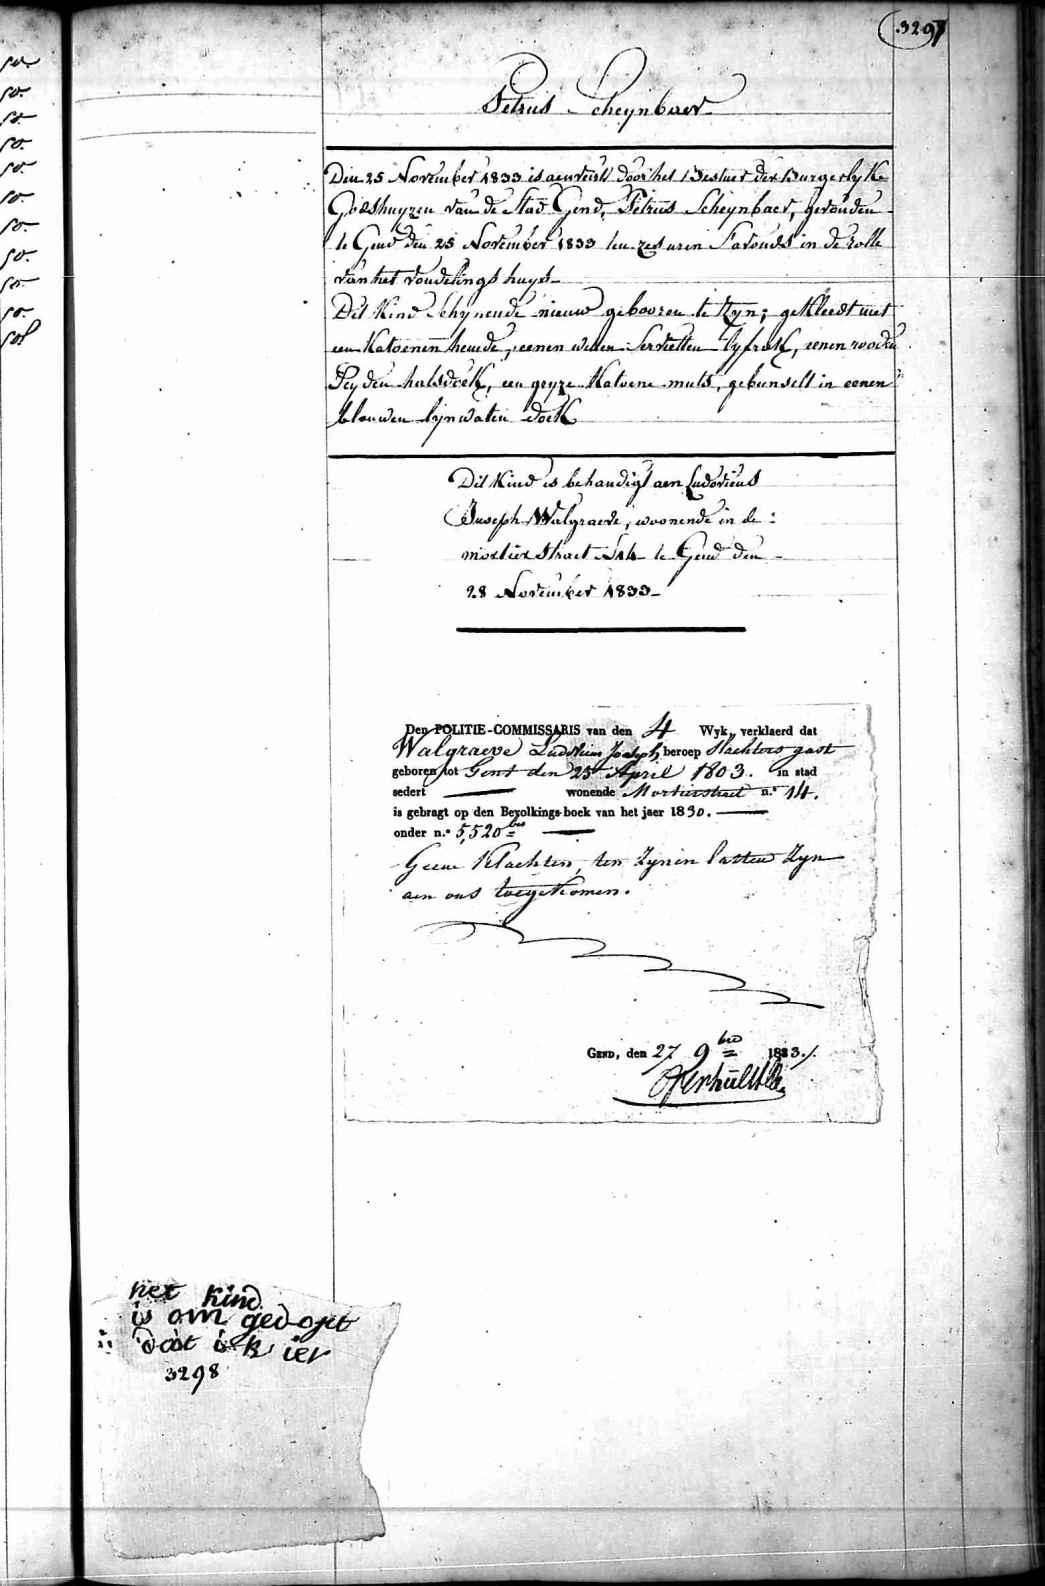 3297
Petrus Scheynbaer
Den 25 November 1833 is aenveird door het Bestuer der Burgerlyke
Godshuyzen van de Stad Gend, Petrus Scheynbaer, gevonden
te Gend den 25 November 1833 ten zes uren S'avonds in de rolle
van het vondelings huys
Dit Kind Schynende nieuw gebooren te Zyn; gekleedt met
een Katoenen hemde, eenen witten Servietten Lyfrok, eenen rooden
Zeyden halsdoek, een gryze Katoene muts, gebunselt in eenen
blauwen lynwaten doek
Dit Kind is behandigt aen Ludovicus
Joseph Walgraeve, woonende in de
mortier Straet S 14 te Gend den
28 November 1833
Den POLITIE-COMMISSARIS van den 4 Wyk, verklaerd dat
Walgraeve Ludovicus Joseph, beroep Slachters gast
geboren tot Gent den 25 April 1803. in stad
sedert wonende Mortierstraet n.º 14.
is gebragt op den Bevolkings-boek van het jaer 1830.
onder n.º 5,520 bis
Geene Klachten, ten Zynen lasten Zyn
aen ons toegekomen.
GEND, den 27 9bre 1833
het kind
is om gedopt
dat is k ier
3298